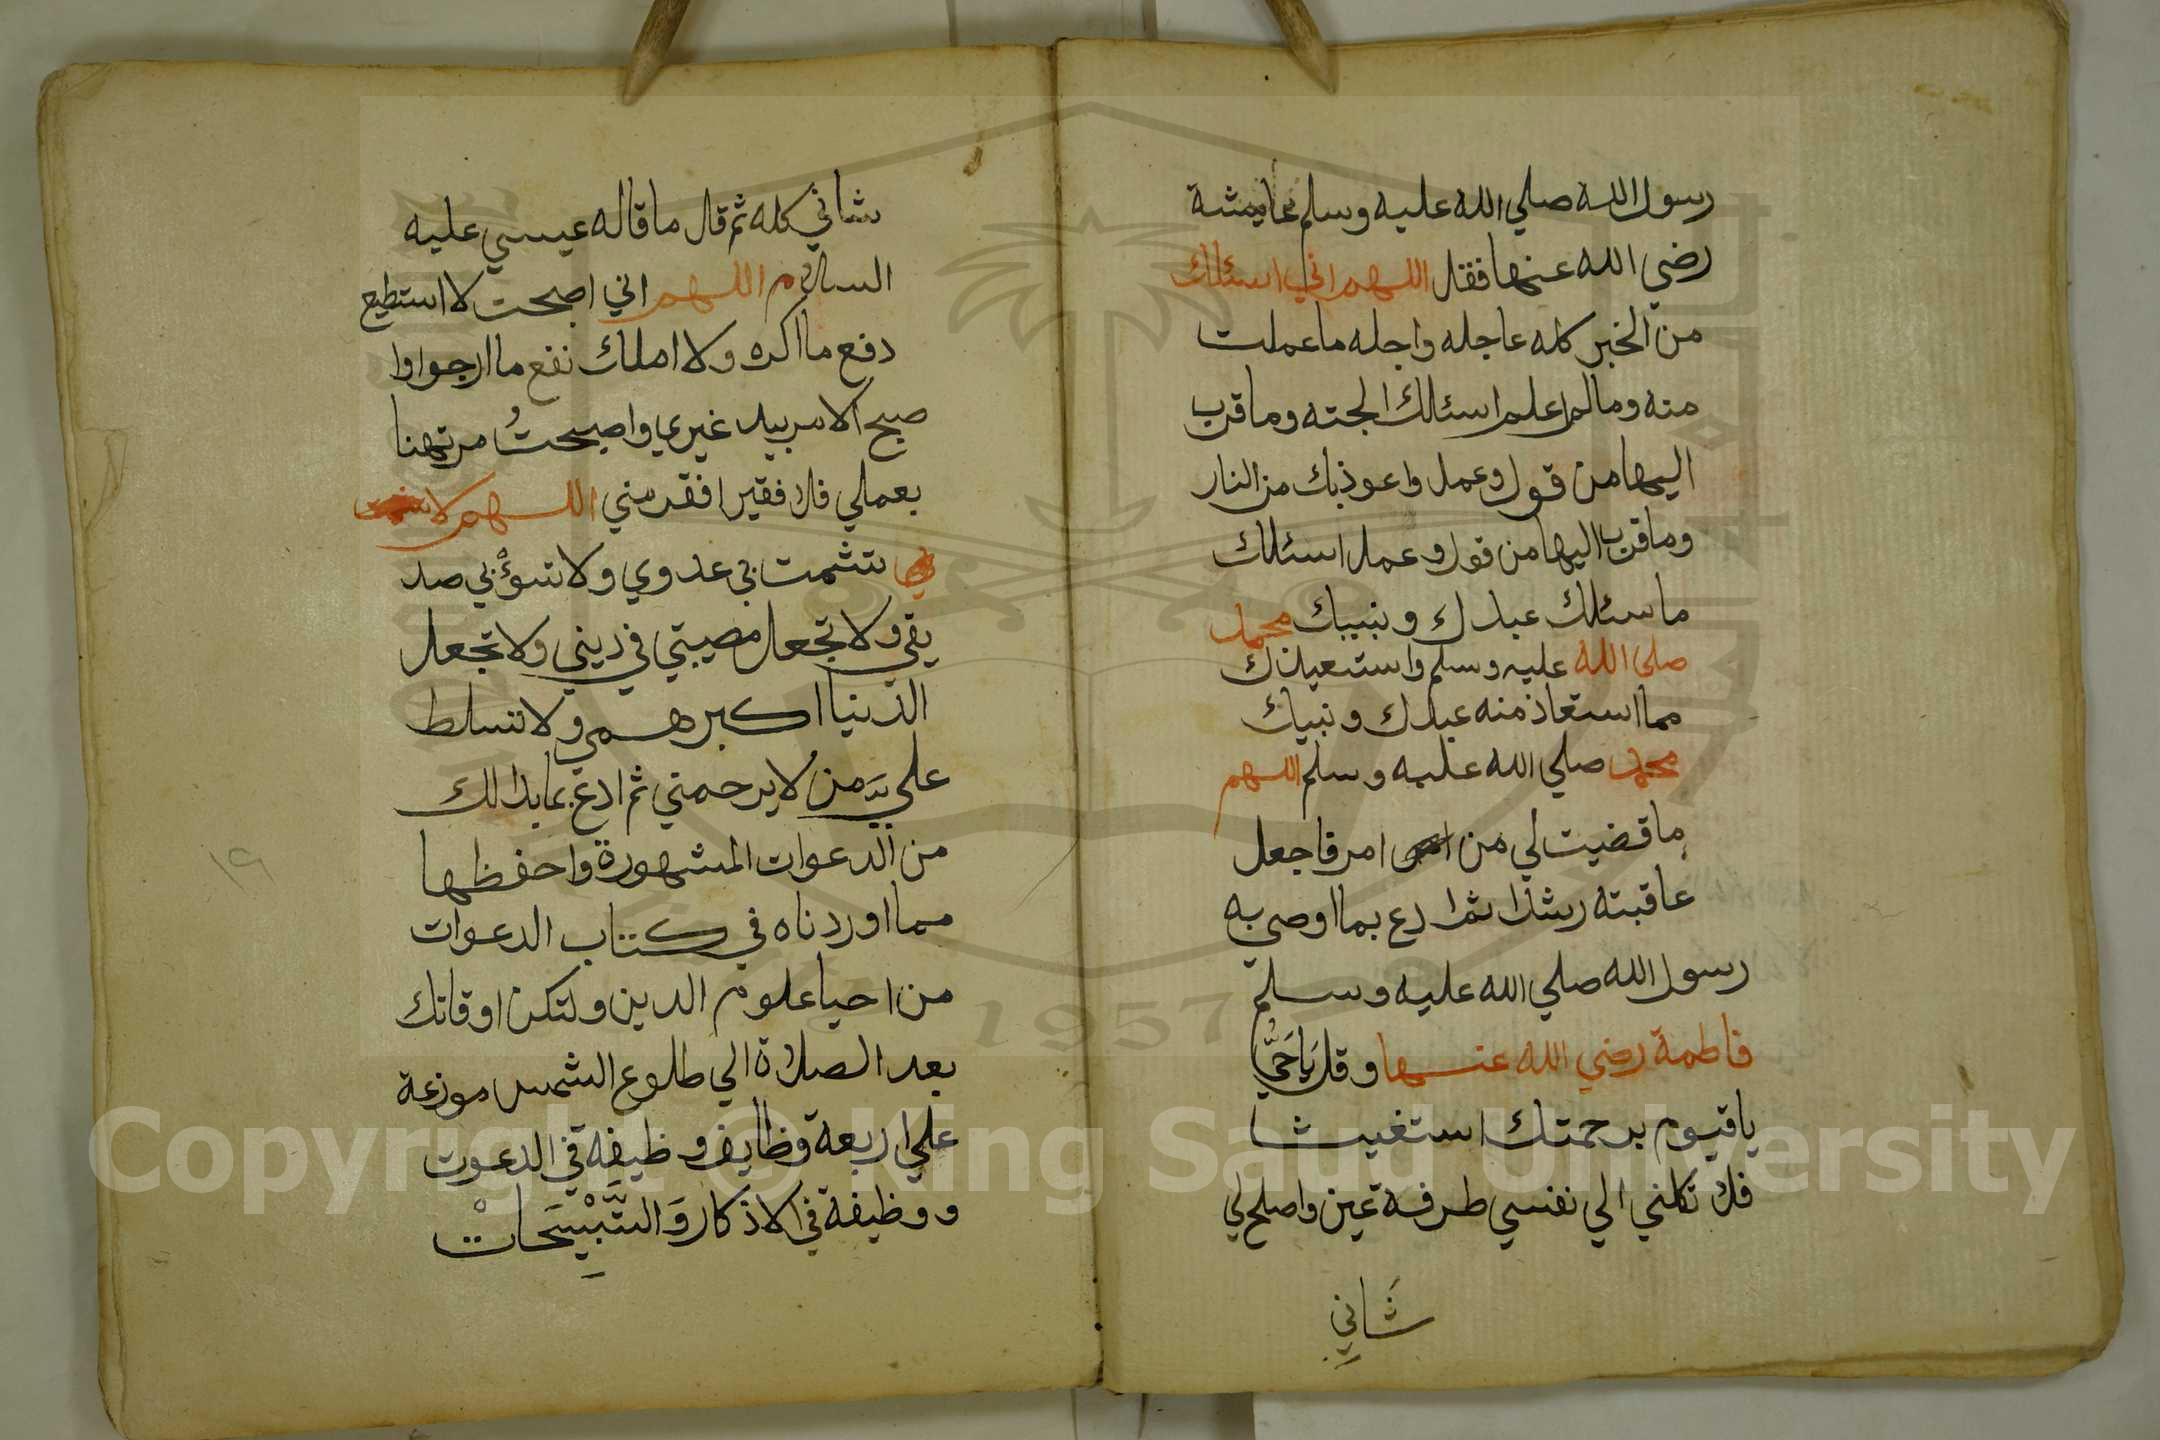 رسول الله صلي الله عليه وسلم عايشة
رضي الله عنها فقل اللهم اني اسئلك
من الخير كله عاجله واجله ما عملت
منه وما لم اعلم اسئالك الجنة وما قرب
اليها من قول وعمل واعوذ بك من النار
وما قرب اليها من قول وعمل اسئلك
ما سئلك عبدك ونبيك محمد
صلى الله عليه وسلم واستعيذك
مما استعاذ منه عبدك ونبيك
محمد صلي الله عليه وسلم اللهم
ما قضيت لي من امر فاجعل
عاقبته رشدا ثم ادع بما اوصي به
رسول الله صلي الله عليه وسلم
فاطمة رضي الله عنها وقل يا حي
يا قيوم برحمتك استغيث
فلا تكلني الي نفسي طرفة عين واصلح لي
شاني
شاني كله ثم قال ما قاله عيسي عليه
السلام اللهم اني اصبحت لا استطيع
دفع ما اكره ولا املك نفع ما ارجوا وا
صبح الامر بيد غيري واصبحت مرتهنا
بعملي فلا فقير افقر مني اللهم لا
تشمت بي عدوي ولا تسؤ بي صد
يقي ولا تجعل مصيبتي في ديني ولا تجعل
الدنيا اكبر همي ولا تسلط
علي من لا يرحمني ثم ادع بما بدا لك
من الدعوات المشهورة واحفظها
مما اوردناه في كتاب الدعوات
من احيا علوم الدين ولتكن اوقاتك
بعد الصلاة الي طلوع الشمس موزعة
علي اربعة وظايف وظيفة في الدعوت
ووظيفة في الاذكار والتسبيحات
١٩
Copyright © King Saud University
1957